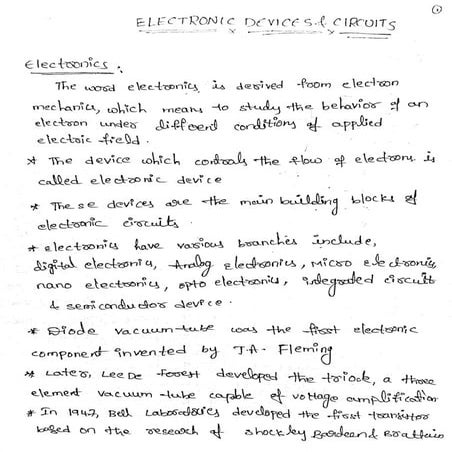 1
ELECTRONIC DEVICES & CIRCUITS
Electronics :
The word electronics is derived from electron
mechanics, which means to study the behavior of an
electron under different conditions of applied
electric field.
* The device which controls the flow of electrons is
called electronic device
* These devices are the main building blocks of
electronic circuits.
* electronics have various branches include,
digital electronics, Analog electronics, Micro electronics,
nano electronics, opto electronics, integrated circuit
& semiconductor device.
* Diode vacuum-tube was the first electronic
component invented by J.A. Fleming
* Later, Lee De Forest developed the triode, a three
element vacuum-tube capable of voltage amplification
* In 1947, Bell Laboratories developed the first transistor
based on the research of shockley Bardeen & Brattain